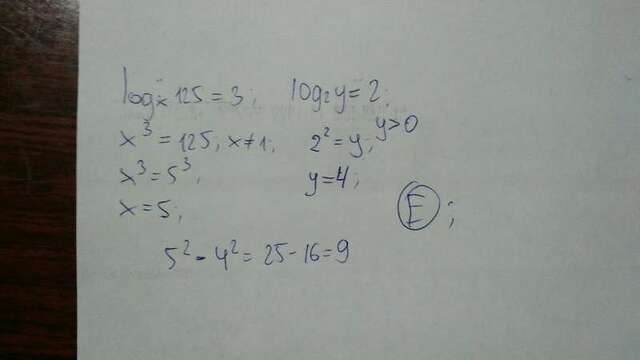 logₓ 125 = 3; log₂ y = 2;
x³ = 125, x ≠ 1; 2² = y; y > 0
x³ = 5³; y = 4;
x = 5; E;
5² - 4² = 25 - 16 = 9